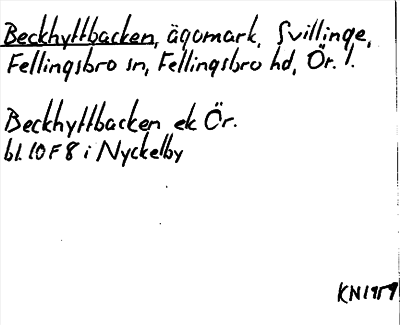 Beckhyttbacken, ägomark, Svillinge,
Fellingsbro sn, Fellingsbro hd, Ör. l.
Beckhyttbacken ek Ör.
bl. 10 F 8 i Nyckelby
KN 1959